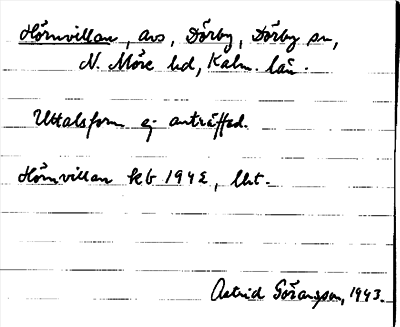 Hörnvillan, avs, Dörby, Dörby sn,
N. Möre hd, Kalm. län.
Uttalsform ej anträffad.
Hörnvillan kb 1942, lht.
Astrid Göransson, 1943.